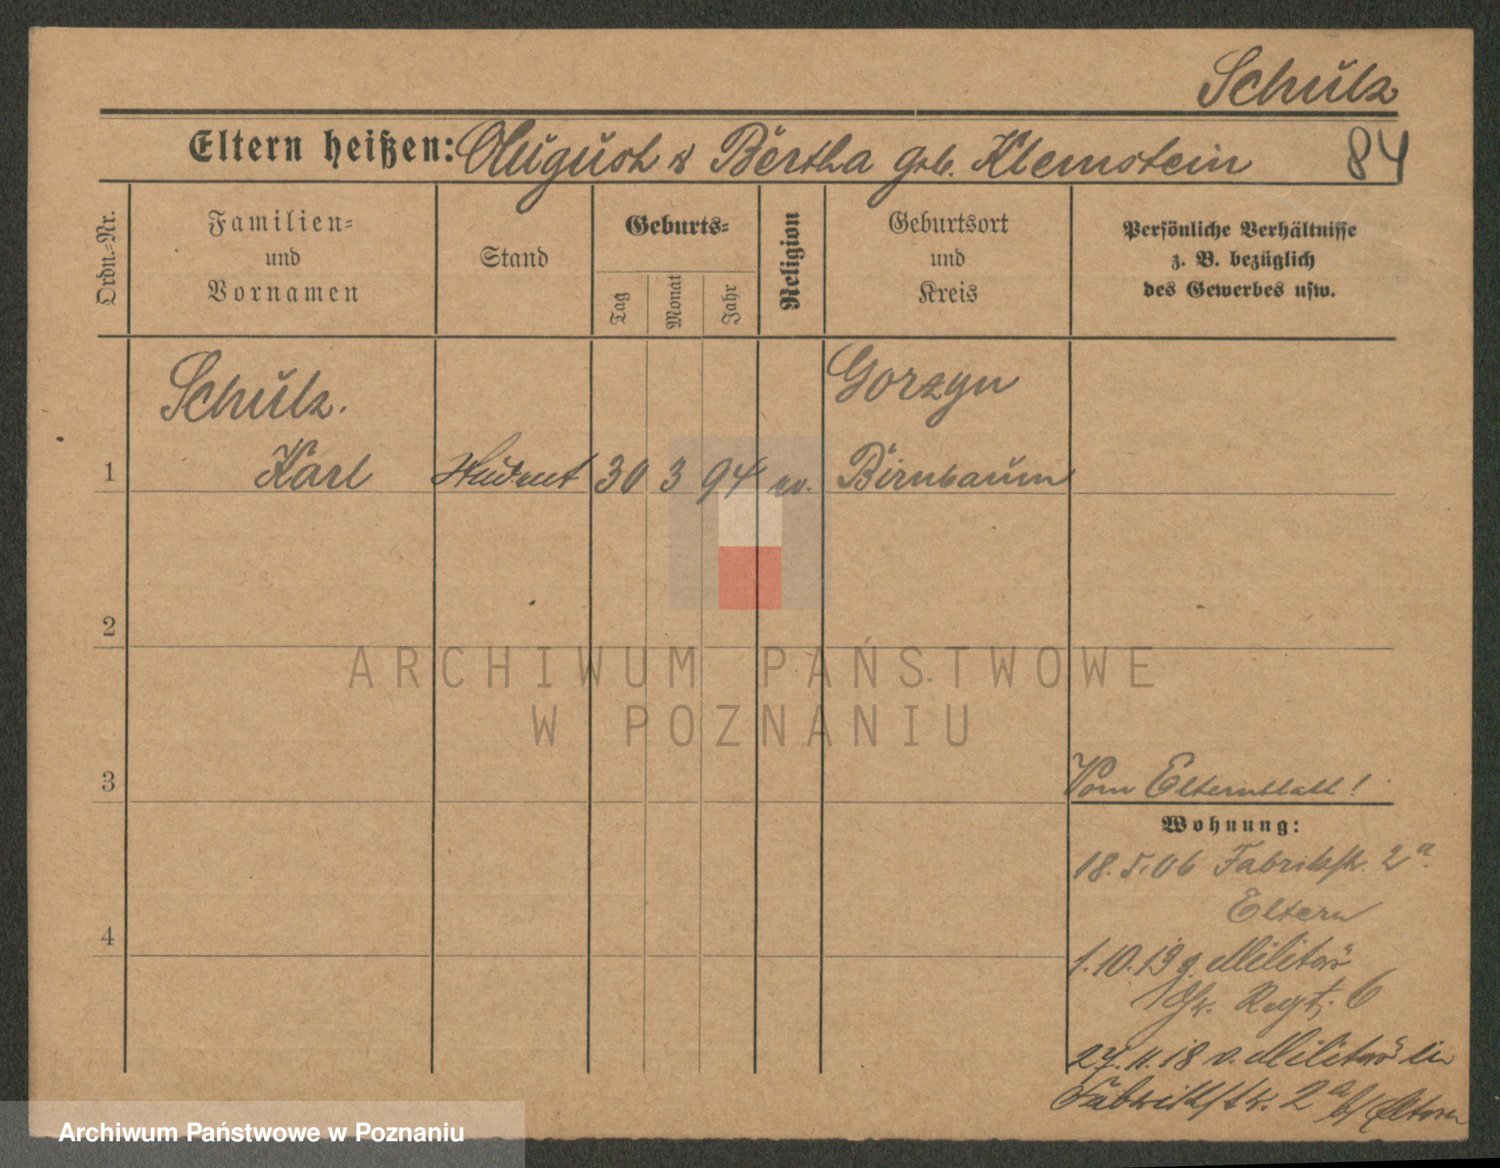 Schulz
Eltern heißen: August & Bertha geb. Klemstein
84
Ordn.-Nr.
Familien-
und
Vornamen
Stand
Geburts-
Tag
Monat
Jahr
Religion
Geburtsort
und
Kreis
Persönliche Verhältnisse
z. B. bezüglich
des Gewerbes usw.
1
Schulz.
Karl
Student
30
3
94
ev.
Gorzyn
Birnbaum
2
3
4
Vom Elternblatt!
Wohnung:
18.5.06 Fabrikstr. 2a.
Eltern
1.10.13 z. Militär
Regt. 6
27.11.18 v. Militär in
Fabrikstr. 2a b/ Eltern
ARCHIWUM PAŃSTWOWE
W POZNANIU
Archiwum Państwowe w Poznaniu